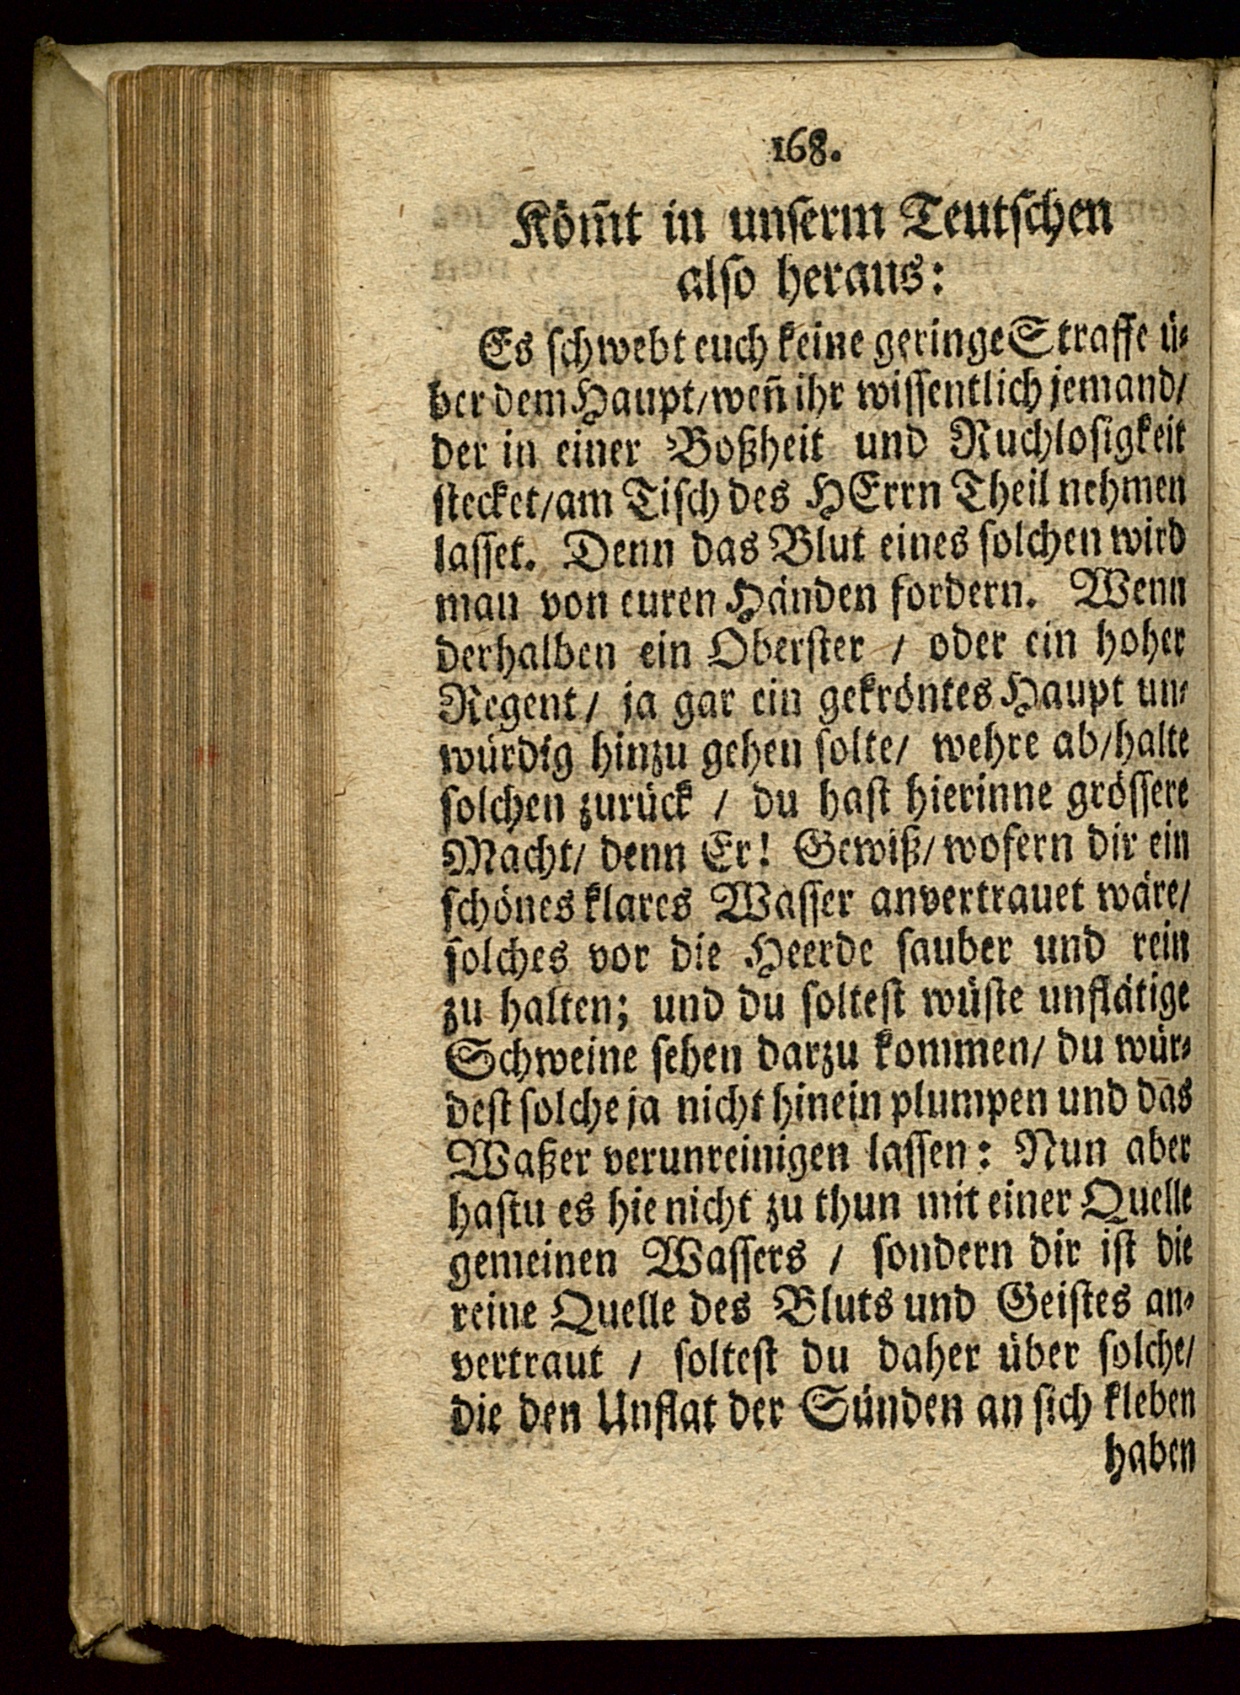 168.
Köm̃t in unserm Teutschen
also heraus:
Es schwebt euch keine geringe Straffe ü-
ber dem Haupt/ weñ ihr wissentlich jemand/
der in einer Boßheit und Ruchlosigkeit
stecket/ am Tisch des HErrn Theil nehmen
lasset. Denn das Blut eines solchen wird
man von euren Händen fordern. Wenn
derhalben ein Oberster / oder ein hoher
Regent/ ja gar ein gekröntes Haupt un-
würdig hinzu gehen solte/ wehre ab/ halte
solchen zurück / du hast hierinne grössere
Macht/ denn Er! Gewiß/ wofern dir ein
schönes klares Wasser anvertrauet wäre/
solches vor die Heerde sauber und rein
zu halten; und du soltest wüste unflätige
Schweine sehen darzu kommen/ du wür-
dest solche ja nicht hinein plumpen und das
Waßer verunreinigen lassen: Nun aber
hastu es hie nicht zu thun mit einer Quelle
gemeinen Wassers / sondern dir ist die
reine Quelle des Bluts und Geistes an-
vertraut / soltest du daher über solche/
die den Unflat der Sünden an sich kleben
haben